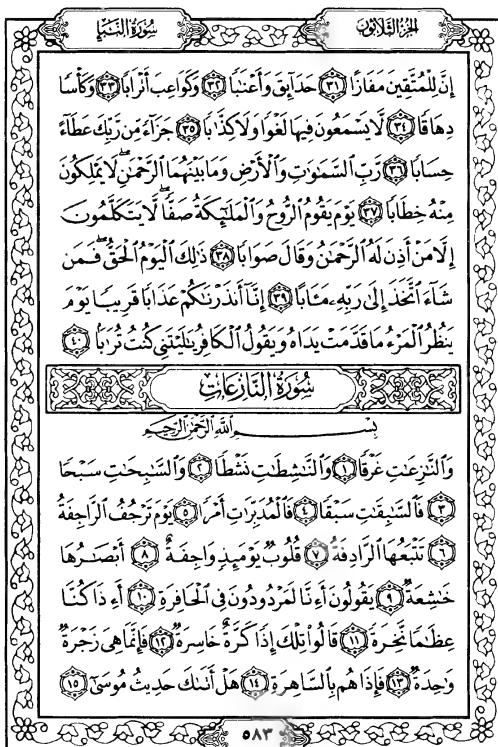 سُورَةُ النَّبَإِ
الجُزْءُ الثَّلَاثُونَ
إِنَّ لِلْمُتَّقِينَ مَفَازًا ٣١ حَدَآئِقَ وَأَعْنَٰبًا ٣٢ وَكَوَاعِبَ أَتْرَابًا ٣٣ وَكَأْسًا
دِهَاقًا ٣٤ لَّا يَسْمَعُونَ فِيهَا لَغْوًا وَلَا كِذَّٰبًا ٣٥ جَزَآءً مِّن رَّبِّكَ عَطَآءً
حِسَابًا ٣٦ رَّبِّ السَّمَٰوَٰتِ وَالْأَرْضِ وَمَا بَيْنَهُمَا الرَّحْمَٰنِ لَا يَمْلِكُونَ
مِنْهُ خِطَابًا ٣٧ يَوْمَ يَقُومُ الرُّوحُ وَالْمَلَٰٓئِكَةُ صَفًّا لَّا يَتَكَلَّمُونَ
إِلَّا مَنْ أَذِنَ لَهُ الرَّحْمَٰنُ وَقَالَ صَوَابًا ٣٨ ذَٰلِكَ الْيَوْمُ الْحَقُّ فَمَن
شَآءَ اتَّخَذَ إِلَىٰ رَبِّهِ مَـَٔابًا ٣٩ إِنَّآ أَنذَرْنَٰكُمْ عَذَابًا قَرِيبًا يَوْمَ
يَنظُرُ الْمَرْءُ مَا قَدَّمَتْ يَدَاهُ وَيَقُولُ الْكَافِرُ يَٰلَيْتَنِى كُنتُ تُرَٰبًا ٤٠
سُورَةُ النَّازِعَاتِ
بِسْمِ اللَّهِ الرَّحْمَٰنِ الرَّحِيمِ
وَالنَّٰزِعَٰتِ غَرْقًا ١ وَالنَّٰشِطَٰتِ نَشْطًا ٢ وَالسَّٰبِحَٰتِ سَبْحًا
٣ فَالسَّٰبِقَٰتِ سَبْقًا ٤ فَالْمُدَبِّرَٰتِ أَمْرًا ٥ يَوْمَ تَرْجُفُ الرَّاجِفَةُ
٦ تَتْبَعُهَا الرَّادِفَةُ ٧ قُلُوبٌ يَوْمَئِذٍ وَاجِفَةٌ ٨ أَبْصَٰرُهَا
خَٰشِعَةٌ ٩ يَقُولُونَ أَءِنَّا لَمَرْدُودُونَ فِى الْحَافِرَةِ ١٠ أَءِذَا كُنَّا
عِظَٰمًا نَّخِرَةً ١١ قَالُوا تِلْكَ إِذًا كَرَّةٌ خَاسِرَةٌ ١٢ فَإِنَّمَا هِىَ زَجْرَةٌ
وَٰحِدَةٌ ١٣ فَإِذَا هُم بِالسَّاهِرَةِ ١٤ هَلْ أَتَىٰكَ حَدِيثُ مُوسَىٰٓ ١٥
٥٨٣